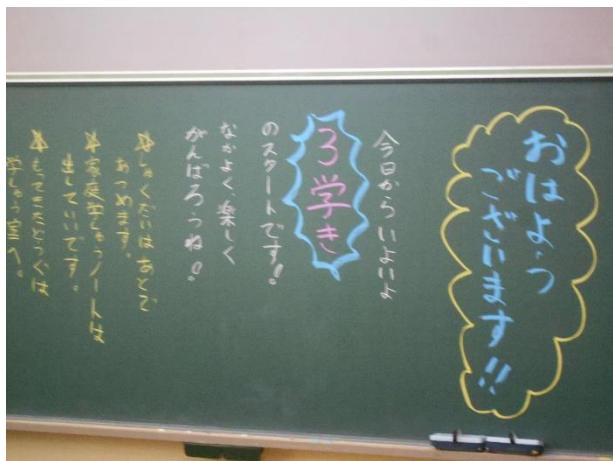 おはよう
ございます!!
今日からいよいよ
3学き
のスタートです!!
なかよく、楽しく
がんばろうね!!
☆しゅくだいはあとで
あつめます。
☆家庭学しゅうノートは
出していいです。
☆もってきたどうぐは
学しゅう室へ。